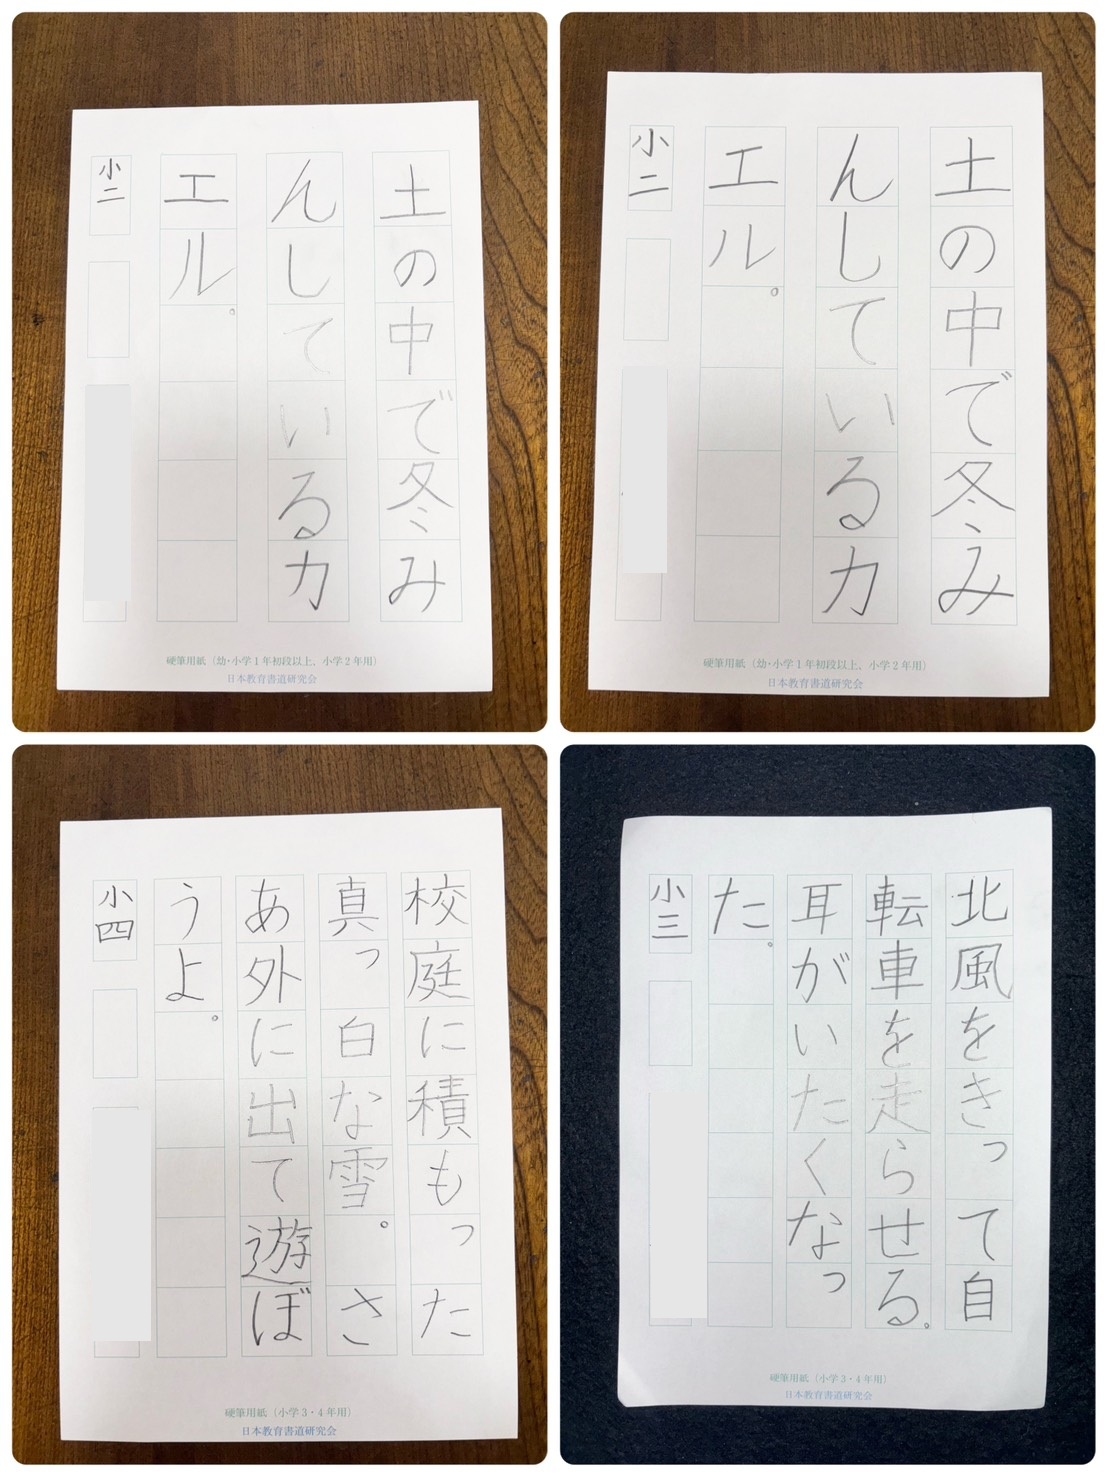 土の中で冬み
んしているカ
エル。
小二
硬筆用紙（幼・小学1年初段以上、小学2年用）
日本教育書道研究会
土の中で冬み
んしているカ
エル。
小二
硬筆用紙（幼・小学1年初段以上、小学2年用）
日本教育書道研究会
校庭に積もった
真っ白な雪。さ
あ外に出て遊ぼ
うよ。
小四
硬筆用紙（小学3・4年用）
日本教育書道研究会
北風をきって自
転車を走らせる。
耳がいたくなっ
た。
小三
硬筆用紙（小学3・4年用）
日本教育書道研究会